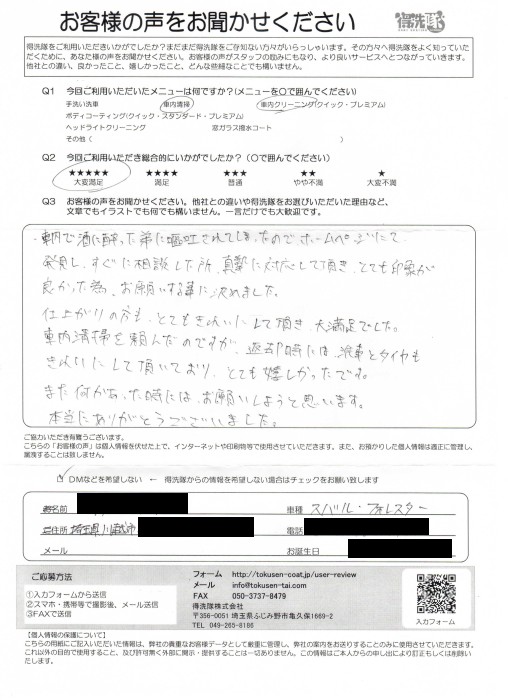 お客様の声をお聞かせください
得洗隊
得洗隊をご利用いただきいかがでしたか?まだまだ得洗隊をご存知ない方々がいらっしゃいます。その方々へ得洗隊をよく知っていた
だくために、あなた様の声をお聞かせください。お客様の声がスタッフの励みにもなり、より良いサービスへとつながっていきます。
他社との違い、良かったこと、嬉しかったこと、どんな些細なことでも構いません。
Q1 今回ご利用いただいたメニューは何ですか?(メニューを○で囲んでください)
手洗い洗車 車内清掃 車内クリーニング(クイック・プレミアム)
ボディコーティング(クイック・スタンダード・プレミアム)
ヘッドライトクリーニング 窓ガラス撥水コート
その他( )
Q2 今回ご利用いただき総合的にいかがでしたか?(○で囲んでください)
★★★★★ ★★★★ ★★★ ★★ ★
大変満足 満足 普通 やや不満 大変不満
Q3 お客様の声をお聞かせください。他社との違いや得洗隊をお選びいただいた理由など、
文章でもイラストでも何でも構いません。一言だけでも大歓迎です。
車内で酒に酔った弟に嘔吐されてしまったのでホームページにて
発見し、すぐに相談した所、真摯に対応して頂き、とても印象が
良かった為、お願いする事に決めました。
仕上がりの方も、とてもきれいにして頂き、大満足でした。
車内清掃を頼んだのですが、返却時には、洗車とタイヤも
きれいにして頂いており、とても嬉しかったです。
また何かあった時には、お願いしようと思います。
本当にありがとうございました。
ご協力いただき有難うございます。
こちらの「お客様の声」は個人情報を伏せた上で、インターネットや印刷物等で使用させていただきます。また、お預かりした個人情報は適正に管理し、
業洩することは致しません。
DMなどを希望しない ← 得洗隊からの情報を希望しない場合はチェックをお願い致します
お名前 車種 スバル・フォレスター
ご住所 埼玉県川越市 電話
メール お誕生日
ご応募方法
①入力フォームから送信
②スマホ・携帯等で撮影後、メール送信
③FAXで送信
フォーム http://tokusen-coat.jp/user-review
メール info@tokusen-tai.com
FAX 050-3737-8479
得洗隊株式会社
〒356-0051 埼玉県ふじみ野市亀久保1669-2
TEL 049-265-8186
入力フォーム
【個人情報の保護について】
こちらの用紙にご記入いただいた情報は、弊社の貴重なお客様データとして厳重に管理し、弊社の案内をお送りすることのみに使用させていただきます。
これ以外の目的で使用すること、及び許可無く外部に開示・提供することは一切ありません。この情報はご本人からの申し出により訂正もしくは削除い
たします。